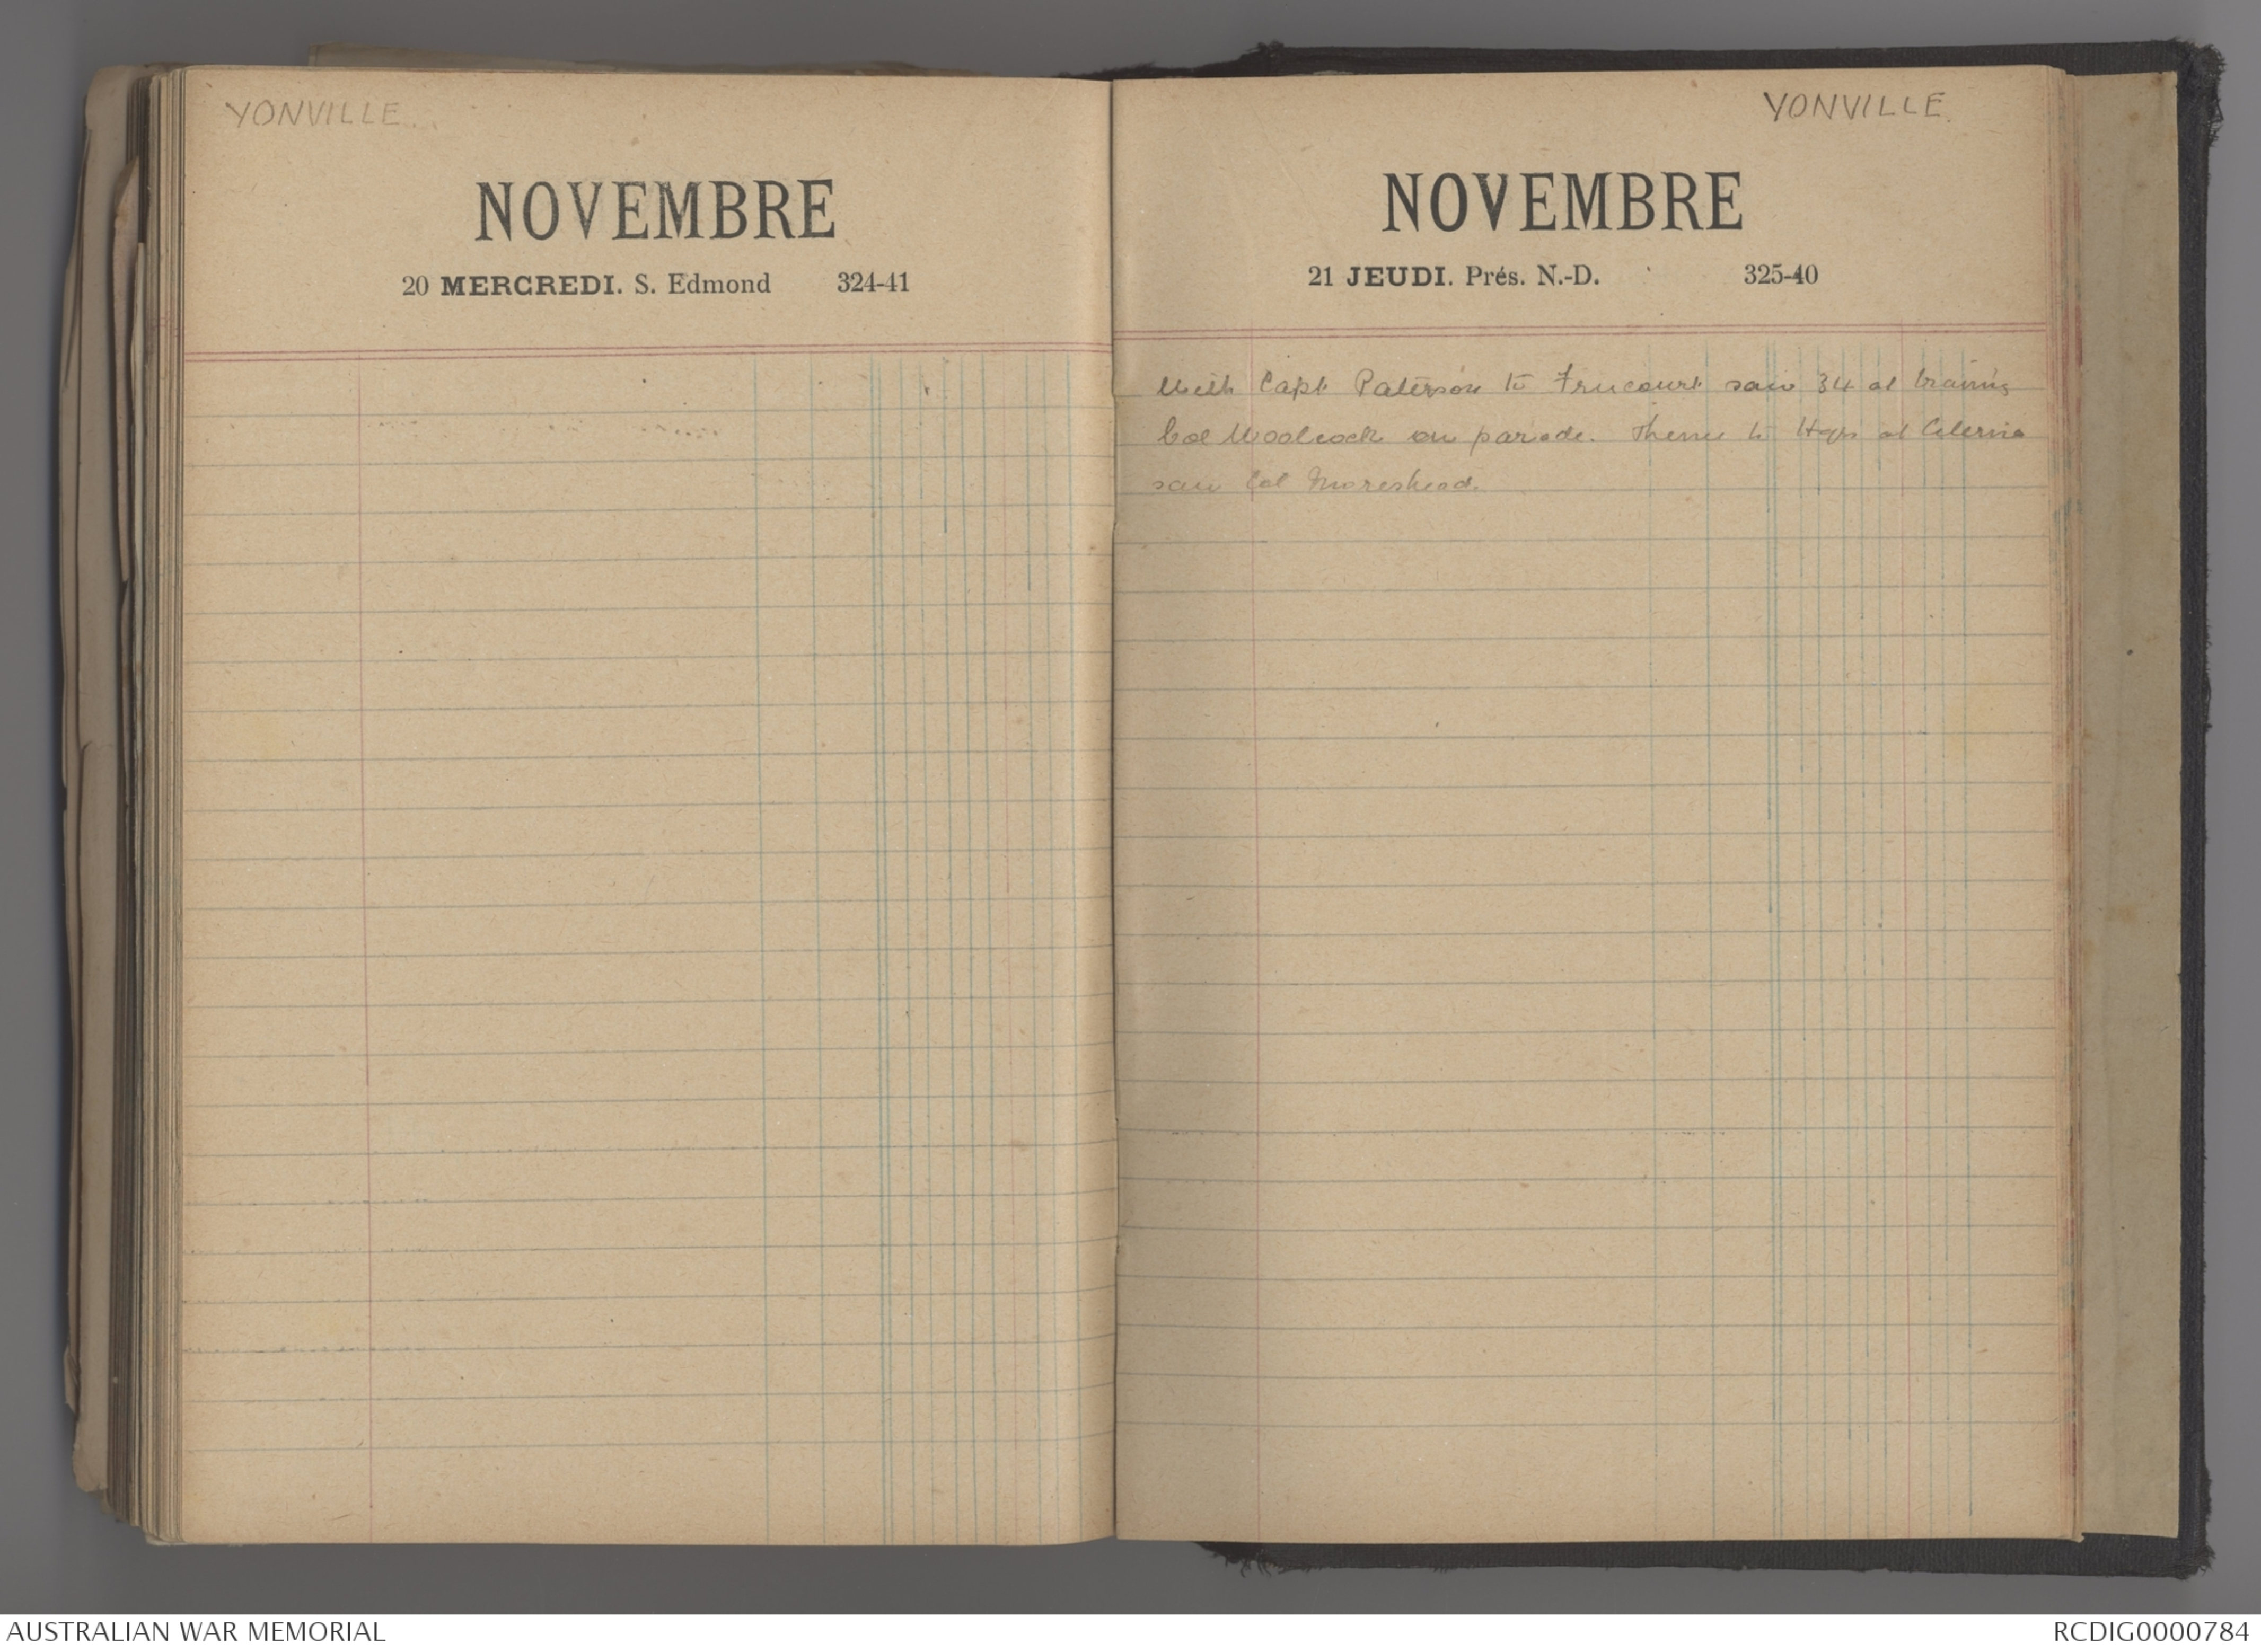 YONVILLE.
NOVEMBRE
20 MERCREDI. S. Edmond 324-41
YONVILLE.
NOVEMBRE
21 JEUDI. Prés. N.-D. 325-40
With Capt Paterson to Frucourt saw 34 at training
Col Woolcock on parade. Thence to Hqrs at
saw Col Moreshead.
AUSTRALIAN WAR MEMORIAL
RCDIG0000784